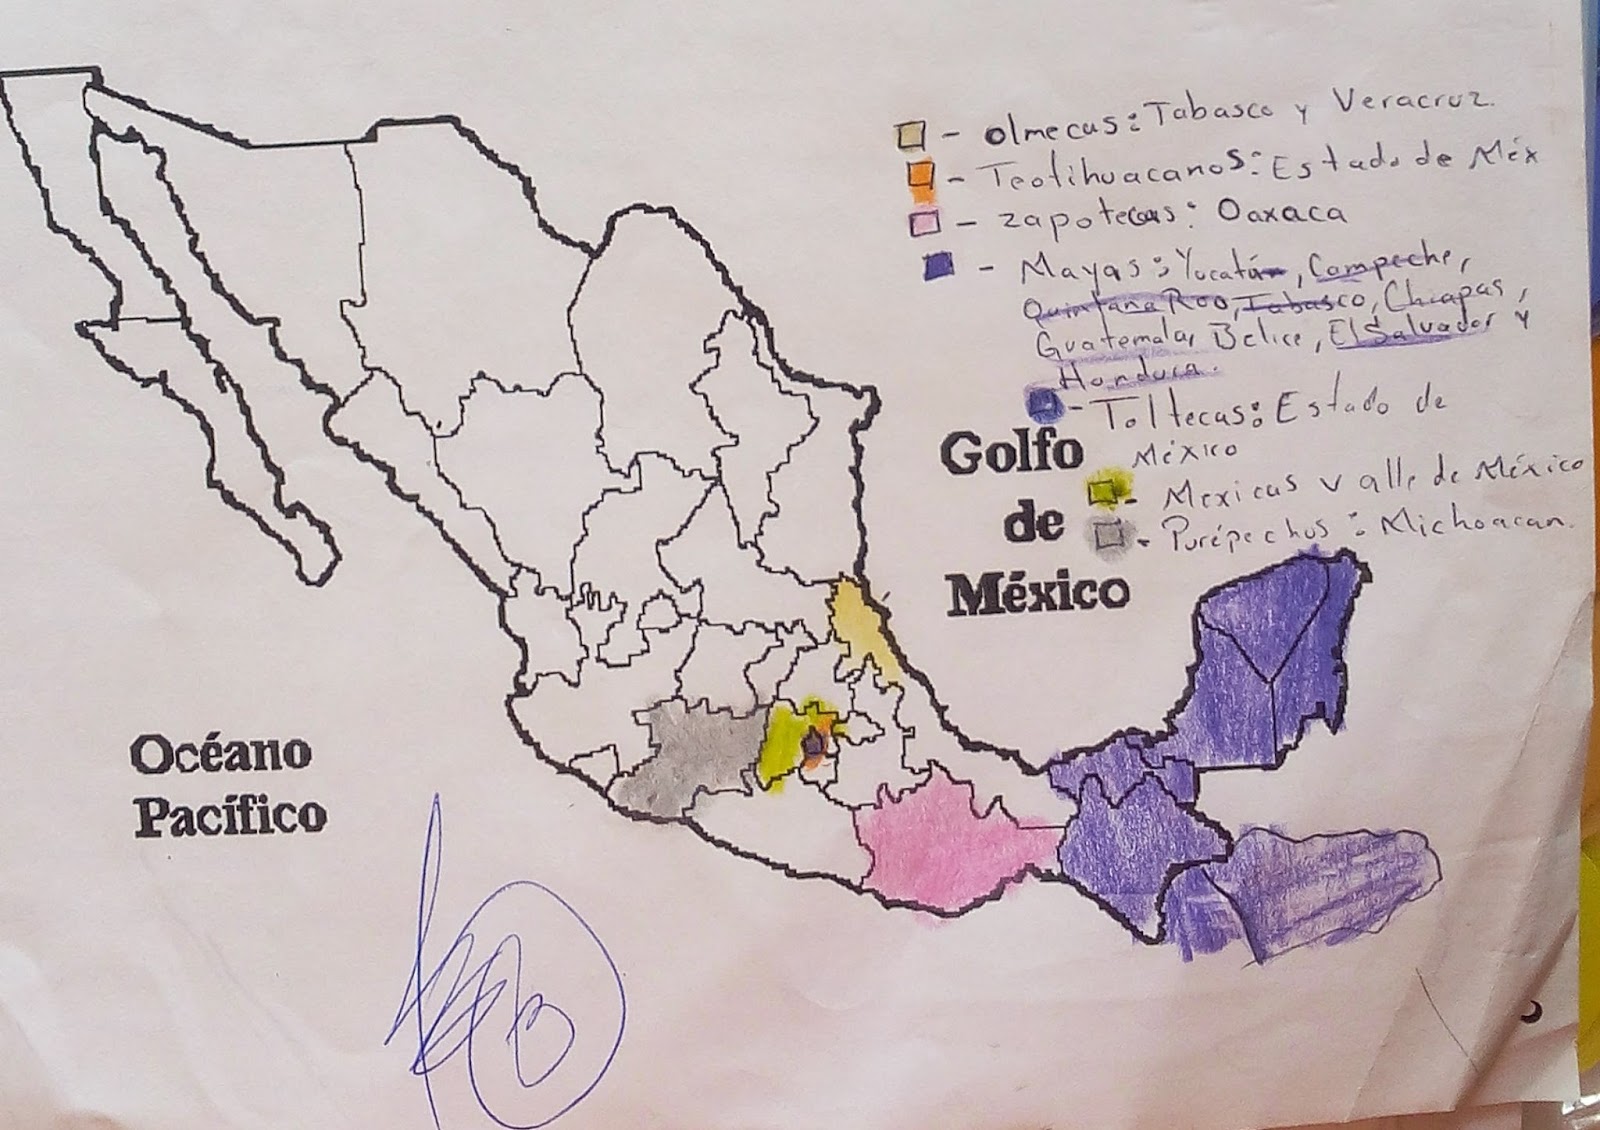 - olmecas: Tabasco y Veracruz.
- Teotihuacanos: Estado de Méx
- zapotecas: Oaxaca
- Mayas: Yucatán, Campeche,
Quintana Roo, Tabasco, Chiapas,
Guatemala, Belice, El Salvador y
Hondura.
- Toltecas: Estado de
México
- Mexicas valle de México
- Purépechos: Michoacan.
Golfo
de
México
Océano
Pacífico